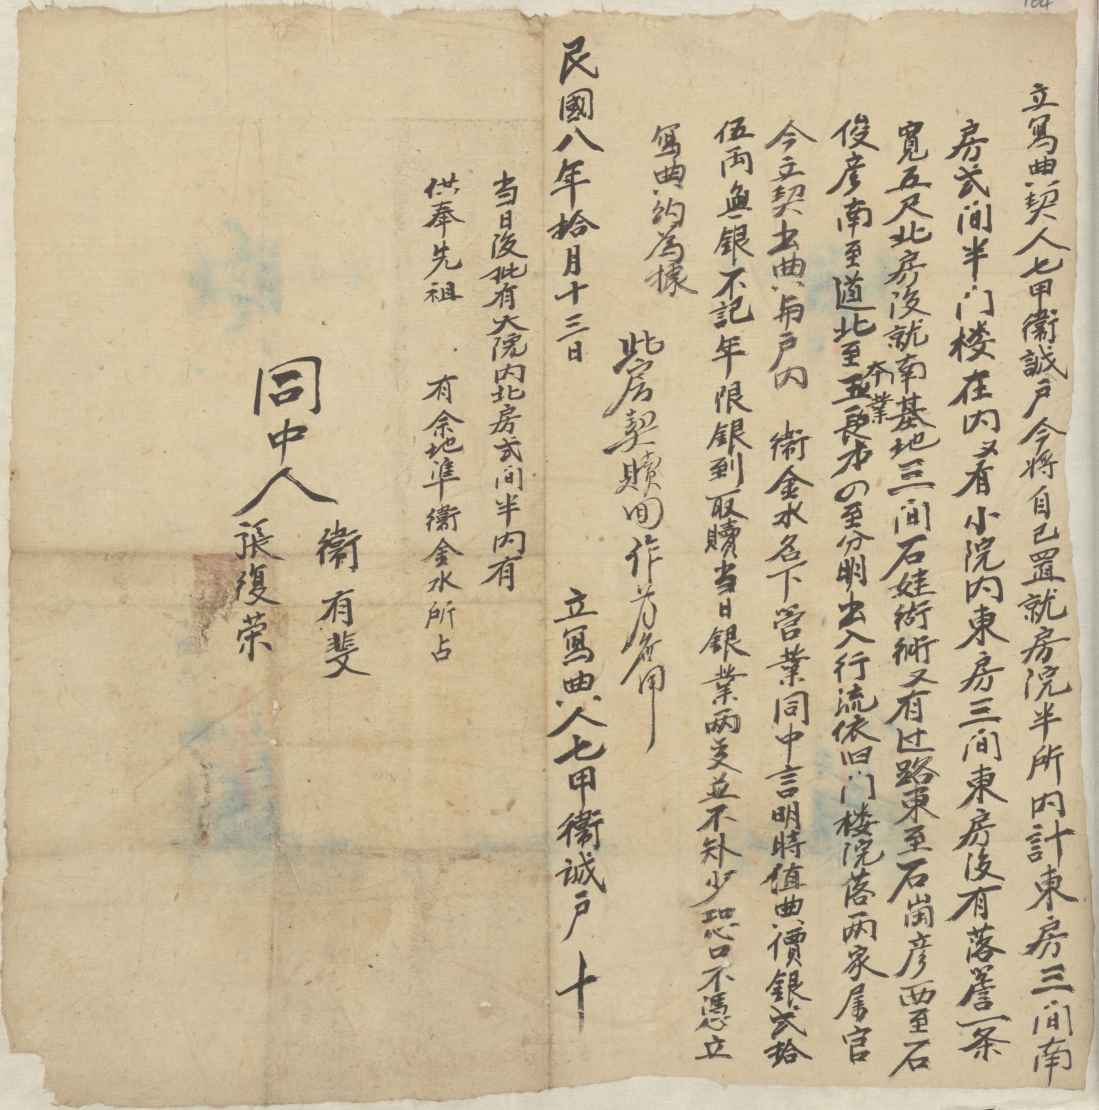 立寫典契人七甲衛誠戶今將自己置就房院半所內計東房三间南
房弍间半门楼在內又有小院內東房三间東房後有落簷一条
寬五尺北房後就南基地三间石娃衚衕又有过路東至石崗彦西至石
俊彦南至道北至本業四至分明出入行流依旧门楼院落两家属官
今立契出典與戶內 衛金水名下营業同中言明時值典價銀弍拾
伍两無銀不記年限銀到取贖当日銀業两交並不缺少恐口不憑立
寫典约為據
此房契贖回作为废用
民國八年拾月十三日 立寫典人七甲衛誠戶 十
当日後批有大院内北房弍间半内有
供奉先祖 有余地準衛金水所占
同中人
衛有斐
張復荣
104